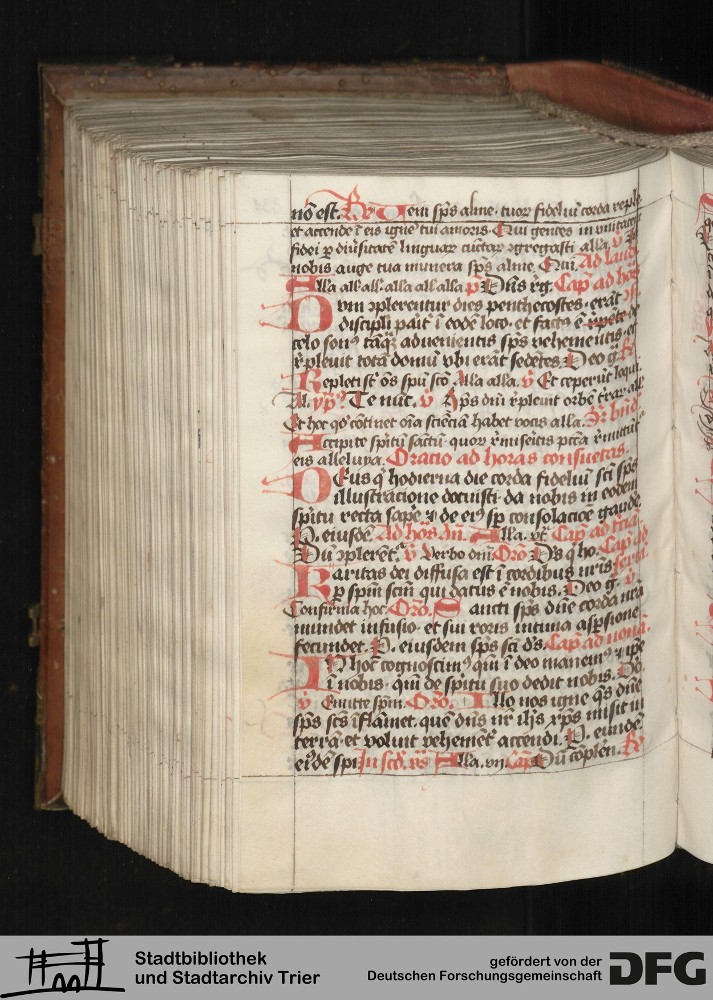 nō est. Ry Veni sps̄ alme · tuoꝝ fideliū corda reple
et accende ī eis ignē tui amoris · Qui gentes in vnitatem
fidei ꝑ diūsitatē linguaꝝ cūctaꝝ ꝯgregasti alla. v̄
nobis auge tua munera sps̄ alme. Qui. Ad laud
Alla all' all' alla all' alla p̄ Dn̄s rg. Capl̄ ad ho
Dvm ꝯplerentur dies penthecostes · erāt
discipli pait' ī eodē loco · et fact9 ē repēte de
celo son9 tāqꝫ aduenientis sps̄ vehementis · et
r̄pleuit totā domū vbi erāt sedētes. Deo g. Ry
Repleti st̄ oēs spū sc̄o Alla alla. v̄ Et ceperūt loqui
All. yp9 Te nūc. v̄ Sps̄ dnī r̄pleuit orbē t̄rar all'
Et hoc qd' cōtinet oīa sciēciā habet vocis alla.
Accipite spiritū sāctū · quoꝝ r̄miseritis pctā r̄mittūt'
eis alleluya. Oracio ad horas consuetas.
DEus q' hodierna die corda fideliū sc̄i sps̄
illustracione docuisti · da nobis in eodem
spiritu recta sapē · ⁊ de ei9 sp̄ consolacioē gaudē.
P. eiusdē. Ad ho4s dn̄. Alla. vt. Capl̄ ad t'ciā.
Dū ꝯplerēt'. v̄ Verbo dnī Oro Ds̄ q' ho. Capl̄ ad
Karitas dei diffusa est ī cordibus nr̄is sexta.
ꝑ spm̄ scm̄ qui datus ē nobis. Deo g. v̄
Confirma hoc Oro. Sancti sps̄ dn̄e corda nr̄a
mundet infusio · et sui roris intima aspersione
fecundet. P. eiusdem sps̄ sc̄i ds̄. Capl̄ ad nonā.
IN hoc cognoscim9 qm̄ ī deo manem9 ⁊ ipē
ī nobis · qm̄ de spiritu suo dedit nobis. Do.
v̄ Emitte spm̄. Oro. Illo nos igne qs̄ dn̄e
sps̄ scs̄ īflāmet · quē dn̄s nr̄ ih̄s xp̄s misit in
terrā · et voluit vehemēt' accendi. P. eiundē
ei9dē spi. In scd. vs Alla. vij. Capl̄ Dū cōplen. Ry
Stadtbibliothek
und Stadtarchiv Trier
gefördert von der
Deutschen Forschungsgemeinschaft DFG